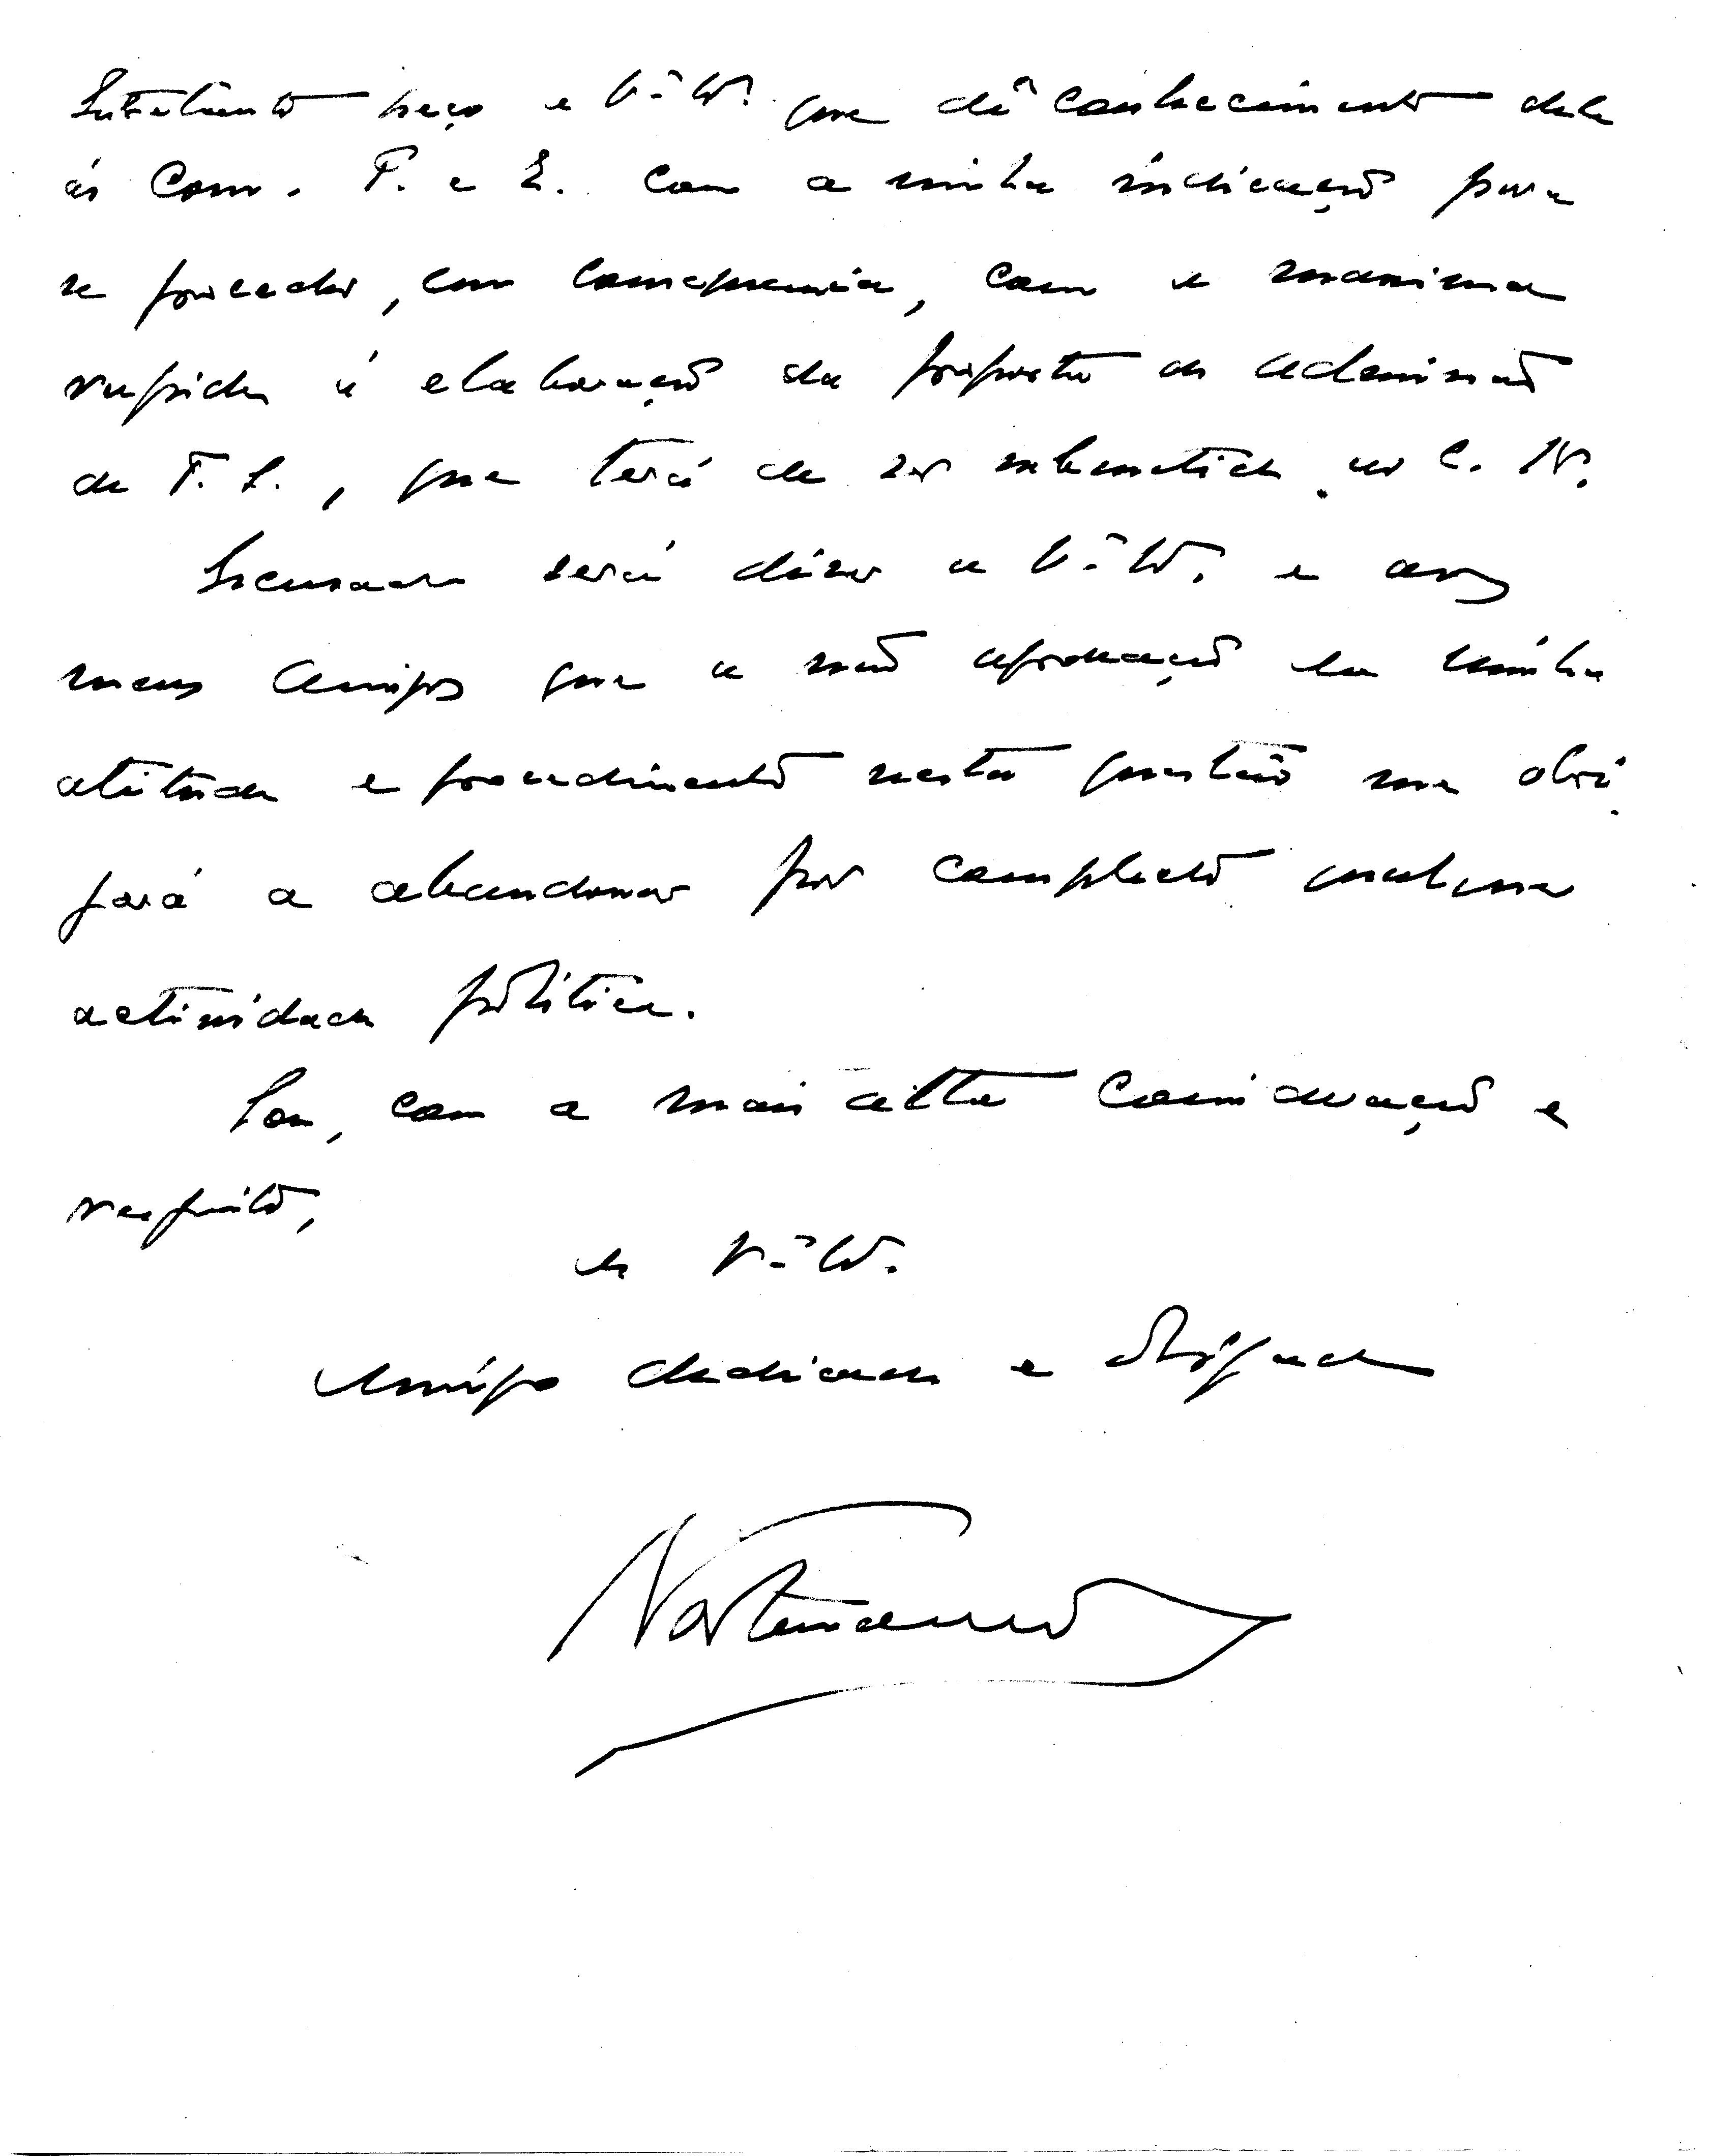 Entretanto peço a V. que dê conhecimento dele
ás Com. P. e E. com a minha indicação para
se proceder, em consequencia, com a maxima
rapidez á elaboração da proposta de
de F. L., que terá de ser submetida ao C. N.
Escusado será dizer a V. e aos
meus amigos que a não aprovação da minha
atitude e procedimento nesta questão me obri
gará a abandonar por completo qualquer
actividade politica.
Sou, com a mais alta consideração e
respeito,
de V.
Amigo dedicado e obrigado